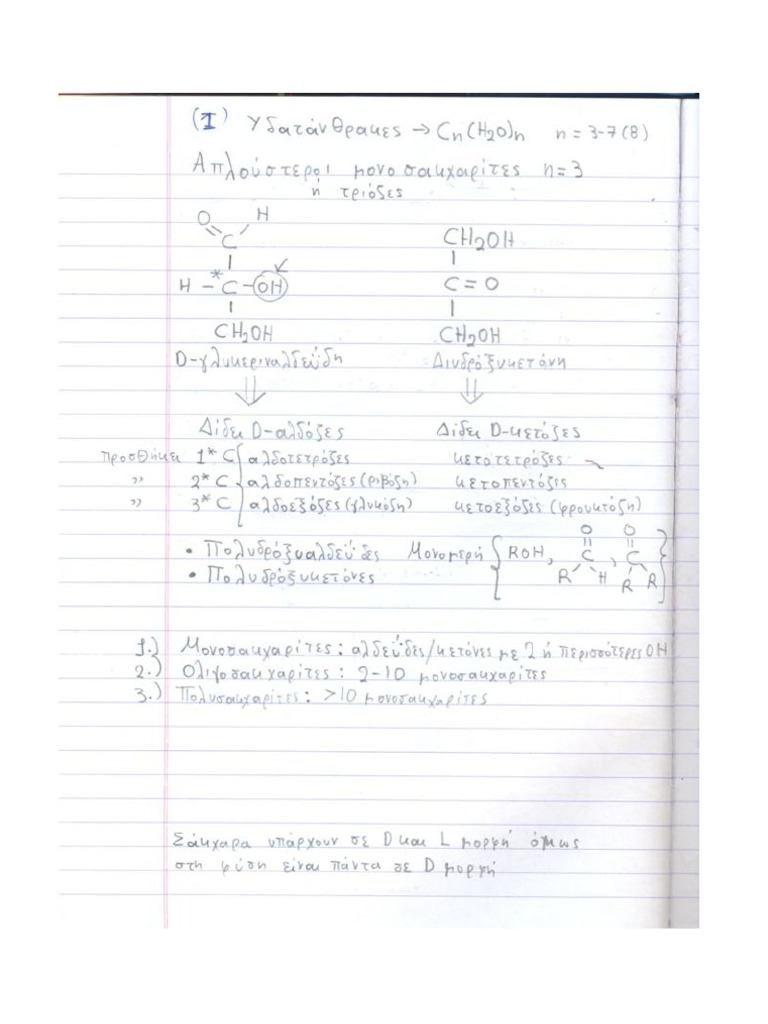 (I) Υδατάνθρακες → Cn(H2O)n n = 3-7(8)
Απλούστεροι μονοσακχαρίτες n=3
ή τριόζες
O H
C
H - *C - OH
CH2OH
D-γλυκεριναλδεΰδη
CH2OH
C = O
CH2OH
Διυδρόξυκετόνη
Δίδει D-αλδόζες Δίδει D-κετόζες
Προσθήκει 1* C αλδοτετρόζες κετοτετρόζες
" 2* C αλδοπεντόζες (ριβόζη) κετοπεντόζες
" 3* C αλδοεξόζες (γλυκόζη) κετοεξόζες (φρουκτόζη)
• Πολυδρόξυαλδεΰδες Μονομερή { ROH, R C O H, R C O R }
• Πολυδρόξυκετόνες
1.) Μονοσακχαρίτες: αλδεΰδες/κετόνες με 2 ή περισσότερες OH
2.) Ολιγοσακχαρίτες: 2-10 μονοσακχαρίτες
3.) Πολυσακχαρίτες: >10 μονοσακχαρίτες
Σάκχαρα υπάρχουν σε D και L μορφή όμως
στη φύση είναι πάντα σε D μορφή